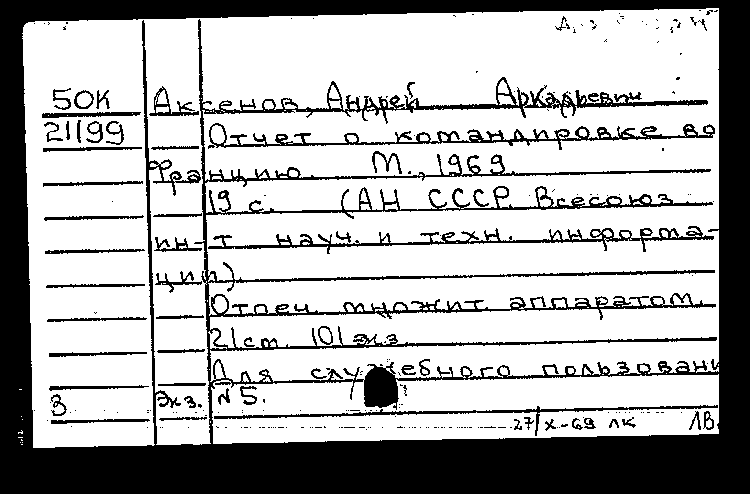 50К Аксенов, Андрей Аркадьевич
21199 Отчет о командировке во
Францию. М., 1969.
19 с. (АН СССР. Всесоюз.
ин-т науч. и техн. информа-
ции).
Отпеч. множит. аппаратом.
21 ст. 101 экз.
Для служебного пользовани
3 Экз. N 5.
27/X-69 ЛК ЛВ.